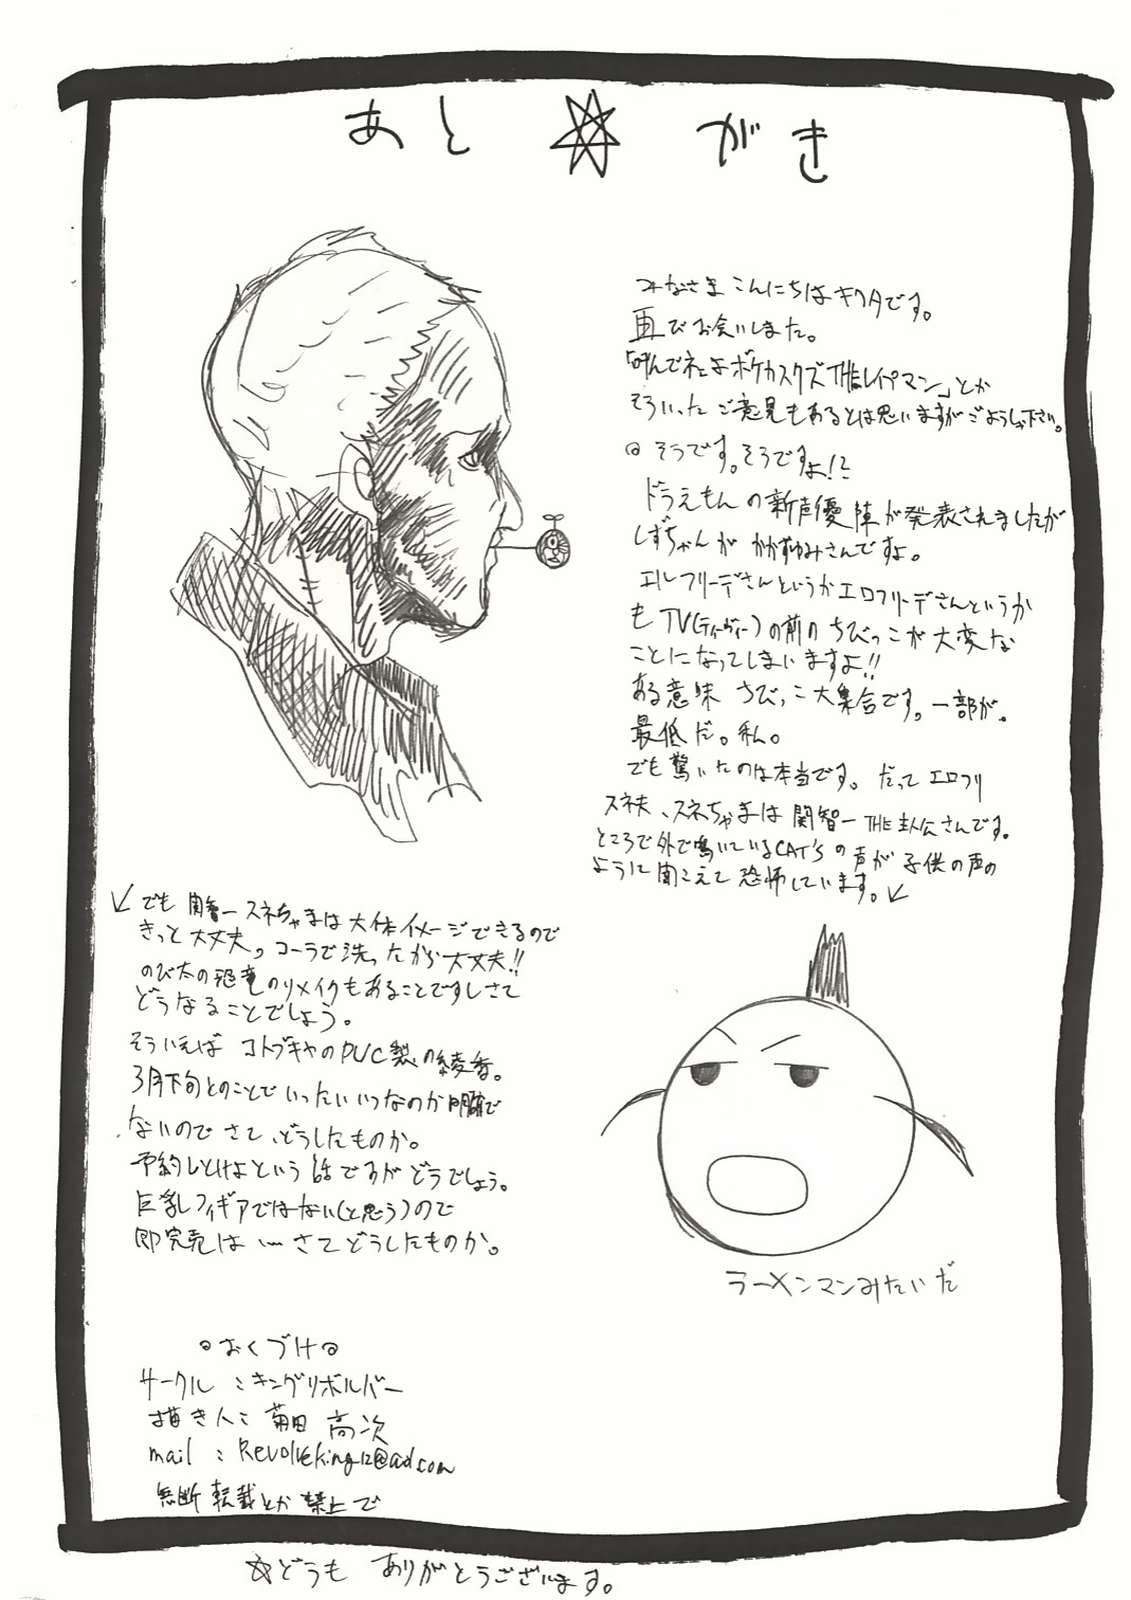 あと☆がき
みなさま こんにちは キクタです。
再びお会いしました。
「死んでネェよボケカスクズTHEレイプマン」とか
そういった ご意見もあるとは思いますがごようしゃ下さい。
◎ そうです。そうですよ!?
ドラえもんの新声優陣が発表されましたが
しずちゃんが かかずゆみさんですよ。
エルフリーデさんというかエロフリーデさんというか
も TV(ティーヴィー)の前のちびっこが大変な
ことになってしまいますよ!!
ある意味 ちびっこ大集合です。一部が。
最低だ。私。
でも驚いたのは本当です。だってエロフリ
スネ夫、スネちゃまは 関智一 THE主人公さんです。
ところで外で鳴いているCAT'Sの声が子供の声の
ように聞こえて恐怖しています。↙
↙でも 関智一スネちゃまは大体イメージできるので
きっと大丈夫。コーラで洗ったから大丈夫!!
のび太の恐竜のリメイクもあることですしさて
どうなることでしょう。
そういえば コトブキヤのPVC製の綾香。
3月下旬とのことでいったいいつなのか明確で
ないのでさて、どうしたものか。
予約しとけよという話ですがどうでしょう。
巨乳フィギアではない(と思う)ので
即完売は…さてどうしたものか。
ラーメンマンみたいだ
◎おくづけ◎
サークル:キングリボルバー
描き人:菊田 高次
mail : Revolveking12@aol.com
無断転載とか禁止で
☆どうも ありがとうございます。